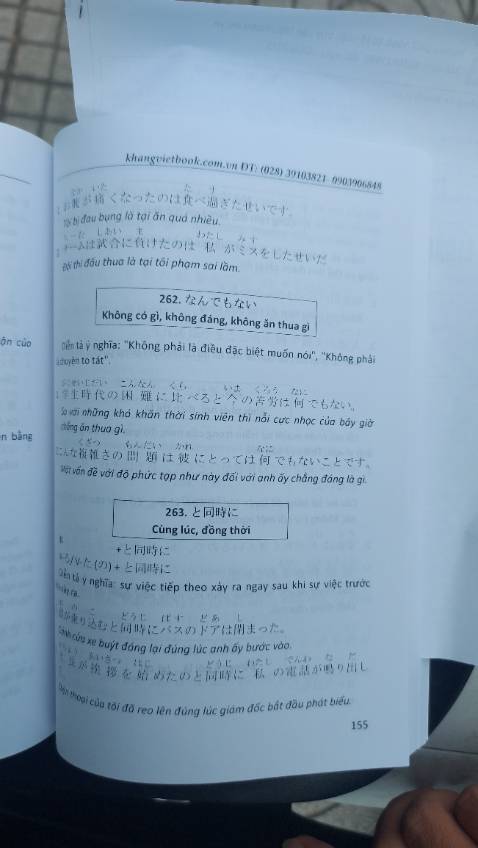 khangvietbook.com.vn ĐT: (028) 39103821- 0903906848
なか いた た す
お腹が痛くなったのは食べ過ぎたせいです。
Tôi bị đau bụng là tại ăn quá nhiều.
しあい ま わたし みす
チームは試合に負けたのは 私 がミスをしたせいだ
Đội thi đấu thua là tại tôi phạm sai lầm.
262. なんでもない
Không có gì, không đáng, không ăn thua gì
Diễn tả ý nghĩa: "Không phải là điều đặc biệt muốn nói", "Không phải
là chuyện to tát".
こんなん くら いま くろう なに
学生時代の困 難に比べると今の苦労は何でもない。
So với những khó khăn thời sinh viên thì nỗi cực nhọc của bây giờ
chẳng ăn thua gì.
ふくざつ もんだい かれ なに
こんな複雑さの問 題は彼にとっては何でもないことです。
Một vấn đề với độ phức tạp như này đối với anh ấy chẳng đáng là gì.
263. と同時に
Cùng lúc, đồng thời
N
+と同時に
V-る/V-た (の) + と同時に
Diễn tả ý nghĩa: sự việc tiếp theo xảy ra ngay sau khi sự việc trước
xảy ra.
の こ どうじ ばす どあ し
が乗り込むと同時にバスのドアは閉まった。
Cánh cửa xe buýt đóng lại đúng lúc anh ấy bước vào.
あいさつ はじ どうじ わたし でんわ な だ
が挨 拶を始めたのと同時に 私 の電話が鳴り出し
Điện thoại của tôi đã reo lên đúng lúc giám đốc bắt đầu phát biểu.
155
ận của
n bằng